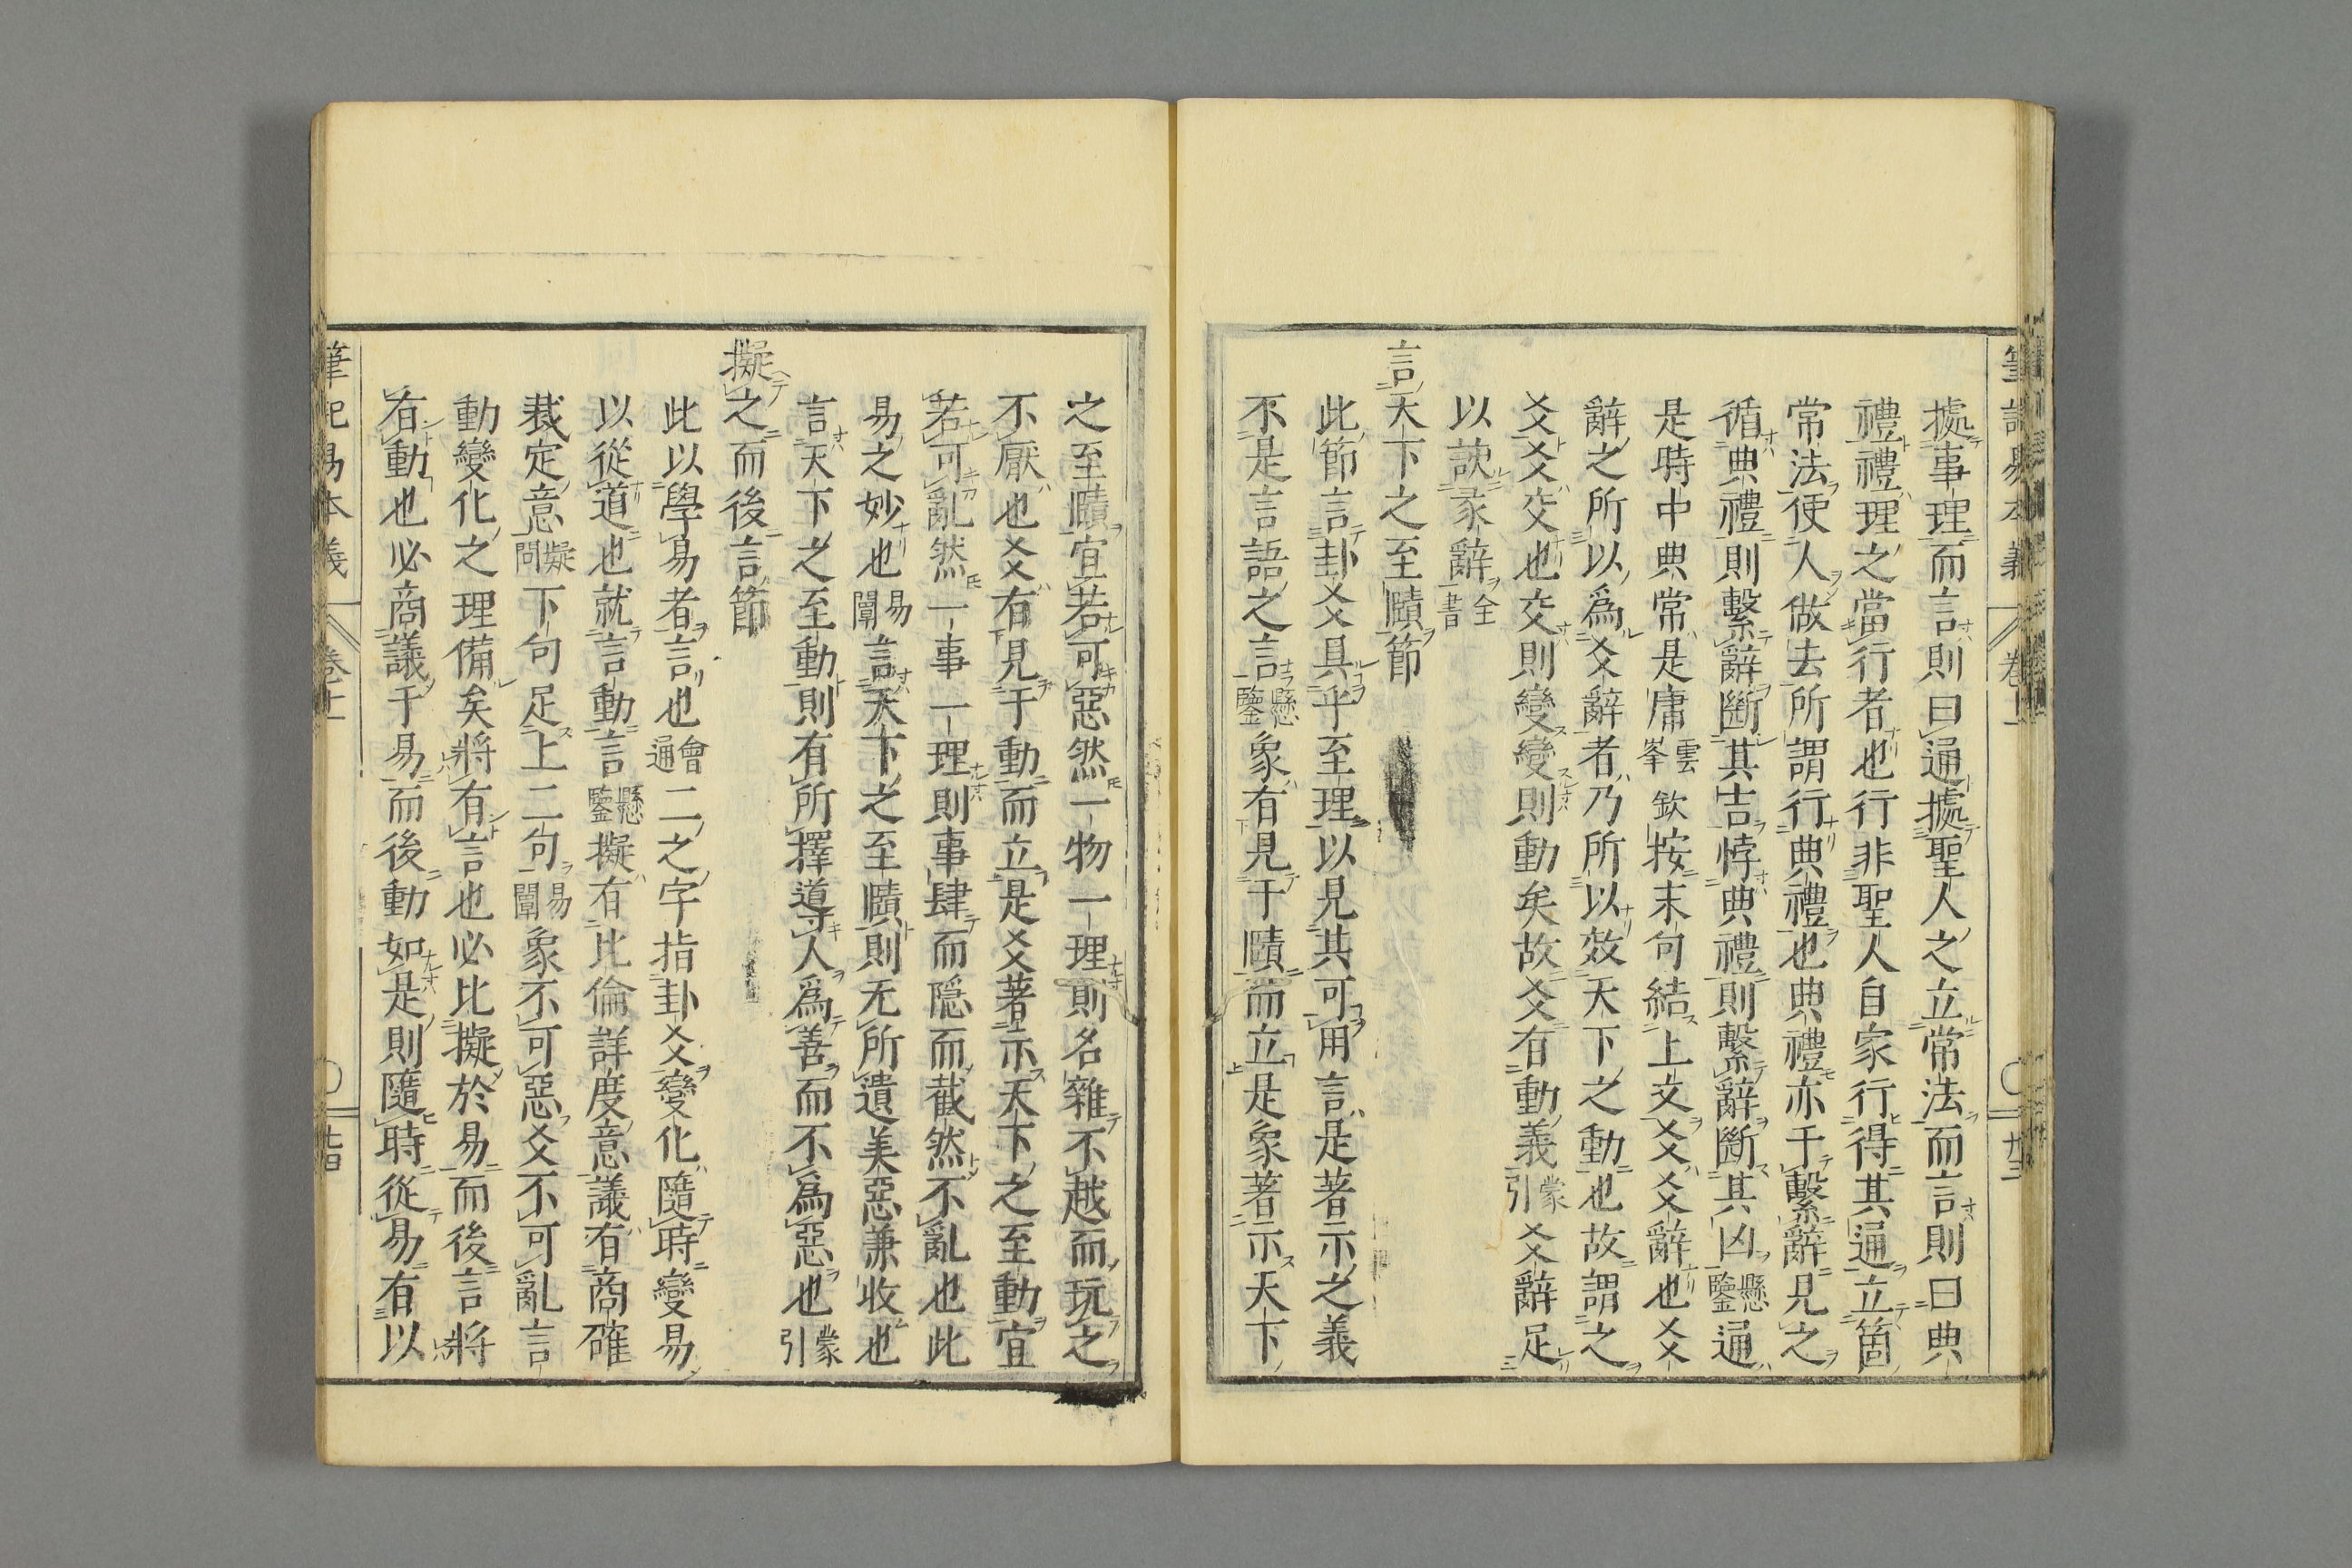 據事理而言則曰通據聖人之立常法而言則曰典
禮禮理之當行者也行非聖人自家行得其通立箇
常法使人做去所謂行典禮也典禮亦于繫辭見之
循典禮則繫辭斷其吉悖典禮則繫辭斷其凶懸鑒通
是時中典常是庸雲峯欽按末句結上文爻爻辭也爻
辭之所以為爻辭者乃所以效天下之動也故謂之
爻爻交也交則變變則動矣故爻有動義蒙引爻辭足
以該彖辭全書
言天下之至賾節
此節言卦爻具乎至理以見其可用言是著示之義
不是言語之言懸鑒象有見于賾而立是象著示天下
之至賾宜若可惡然一物一理則名雜不越而玩之
不厭也爻有見于動而立是爻著示天下之至動宜
若可亂然一事一理則事肆而隱而截然不亂也此
易之妙也易闡言天下之至賾則无所遺美惡兼收也
言天下之至動則有所擇導人為善而不為惡也蒙引
擬之而後言節
此以學易者言也會通二之字指卦爻變化隨時變易
以從道也就言動言懸鑒擬有比倫詳度意議有商確
裁定意擬問下句足上二句易闡象不可惡爻不可亂言
動變化之理備矣將有言也必比擬於易而後言將
有動也必商議于易而後動如是則隨時從易有以
筆記易本義